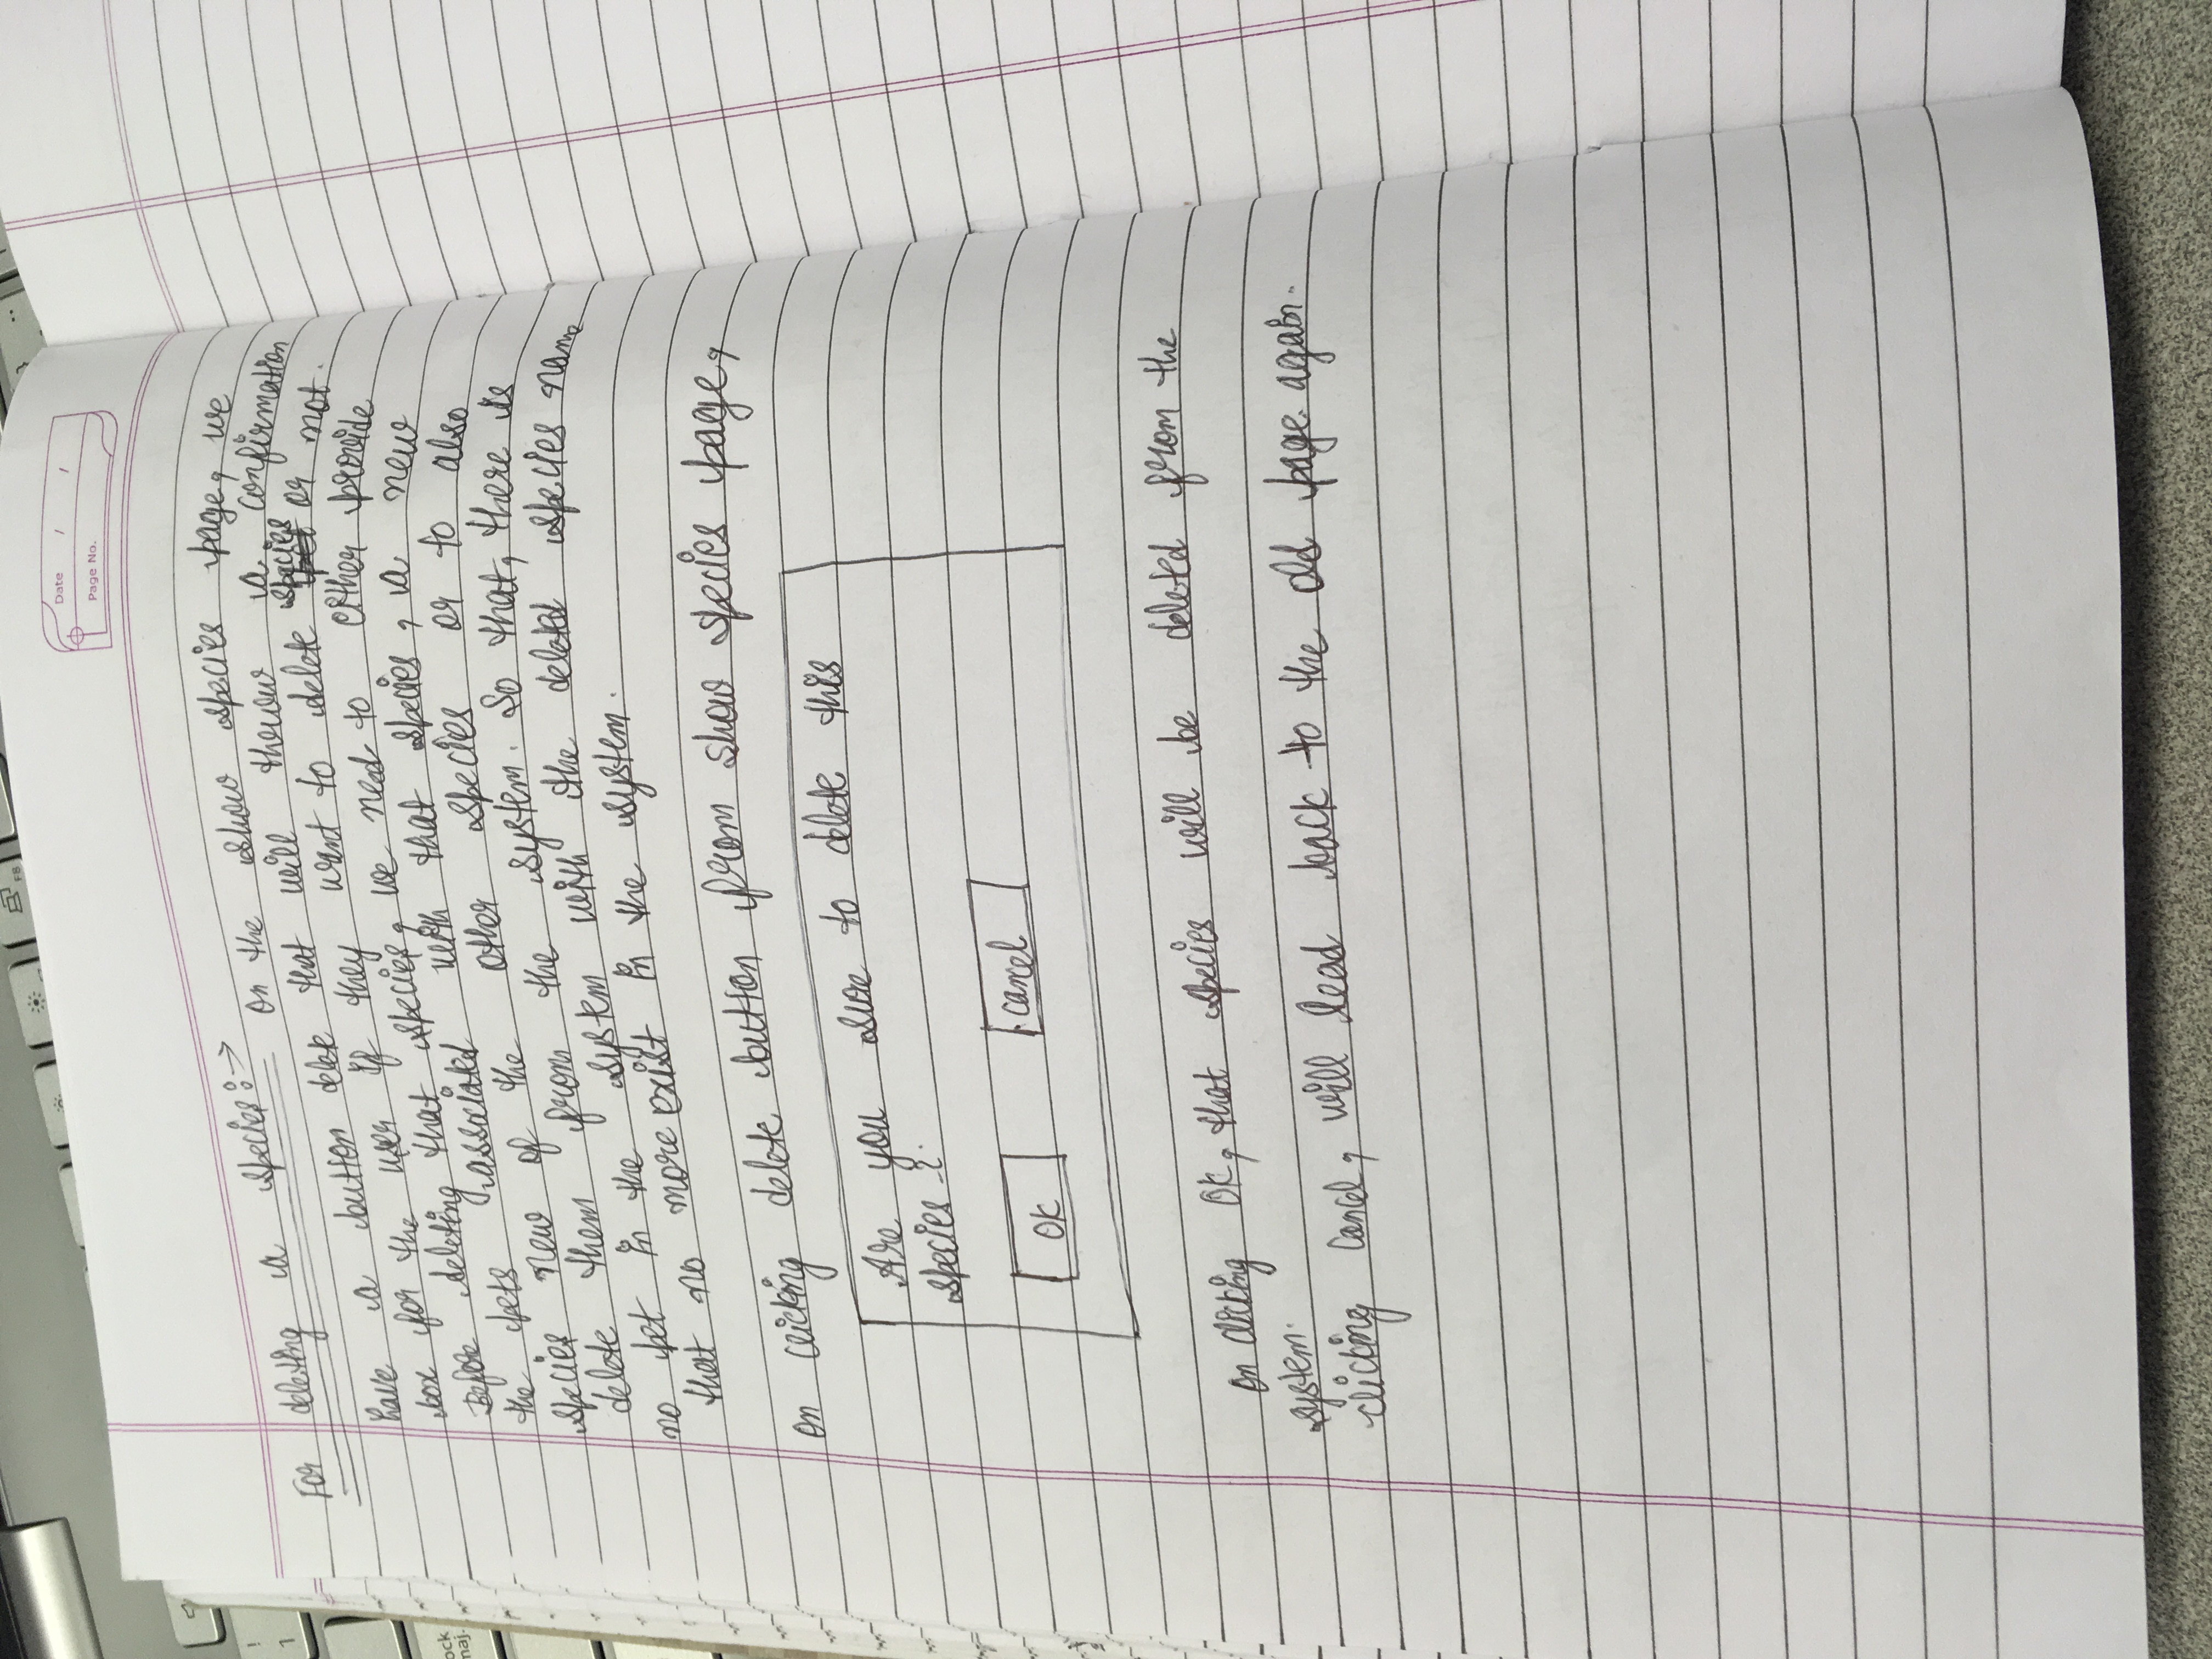 Date / /
Page No.
For deleting a species :→ On the show species page, we
have a button delete that will throw a confirmation
box for the user if they want to delete species or not.
Before deleting that species, we need to either provide
the pets associated with that species, a new
species new of the other species or to also
delete them from the system. So that, there is
no pet in the system with the deleted species name
that no more exist in the system.
On clicking delete button from show species page,
Are you sure to delete this
species ?
OK
Cancel
On clicking OK, that species will be deleted from the
system.
clicking Cancel, will lead back to the old page again.
F8
!
1
ock
maj.